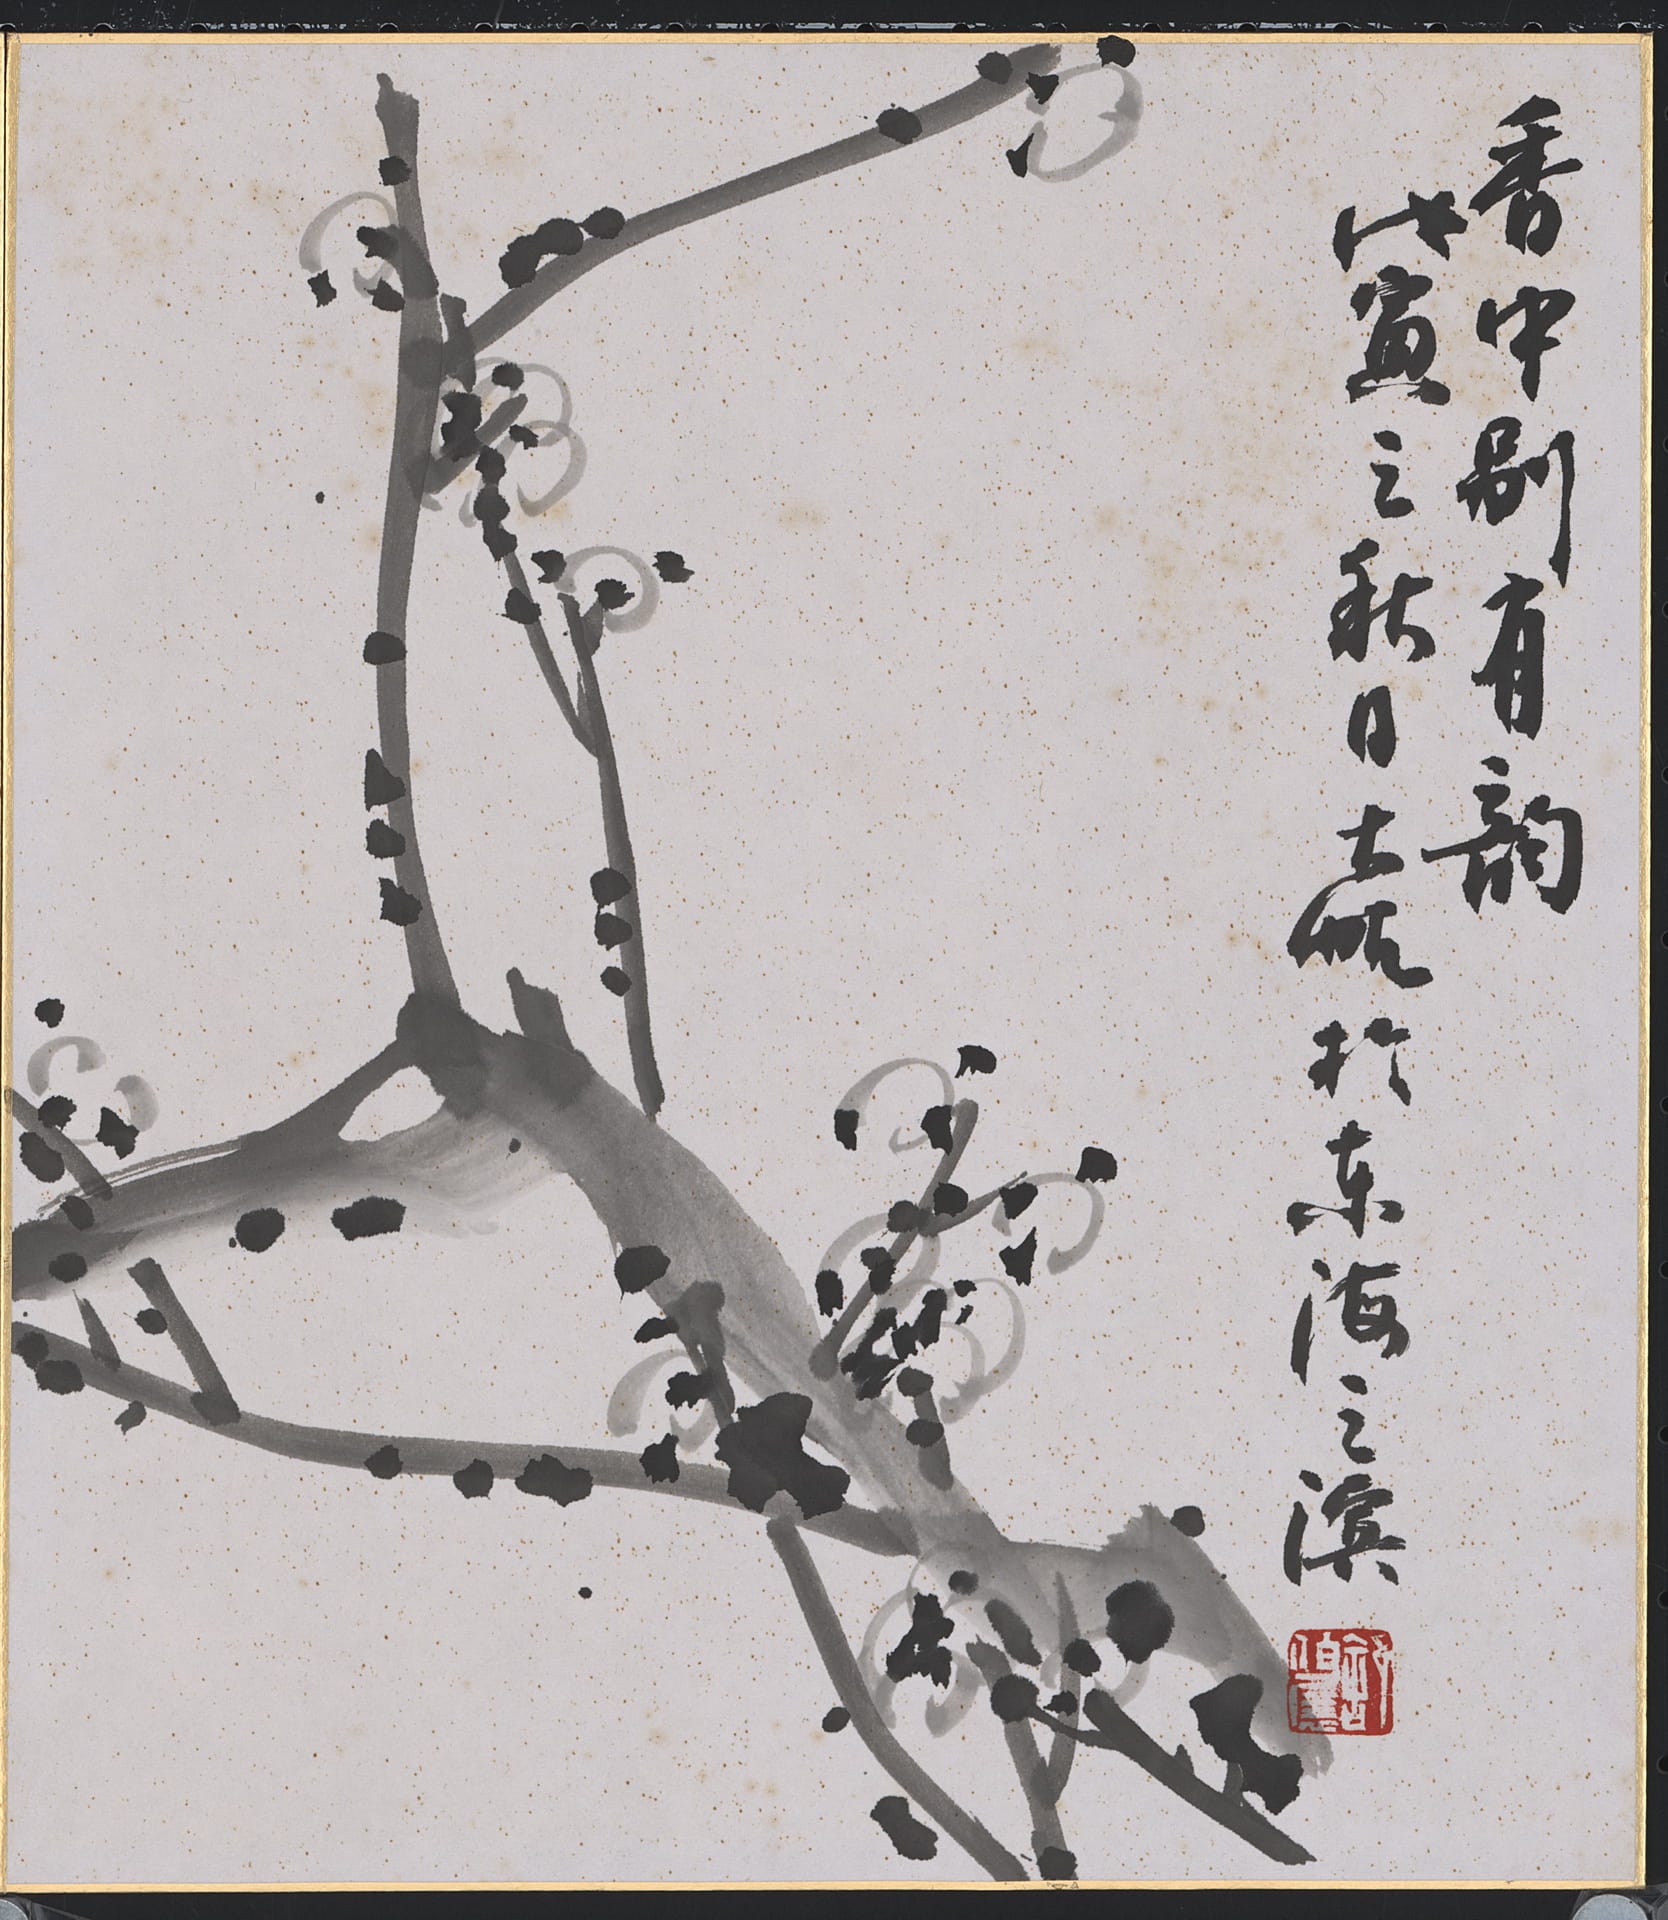 香中别有韵
戊寅之秋日 於东海之滨